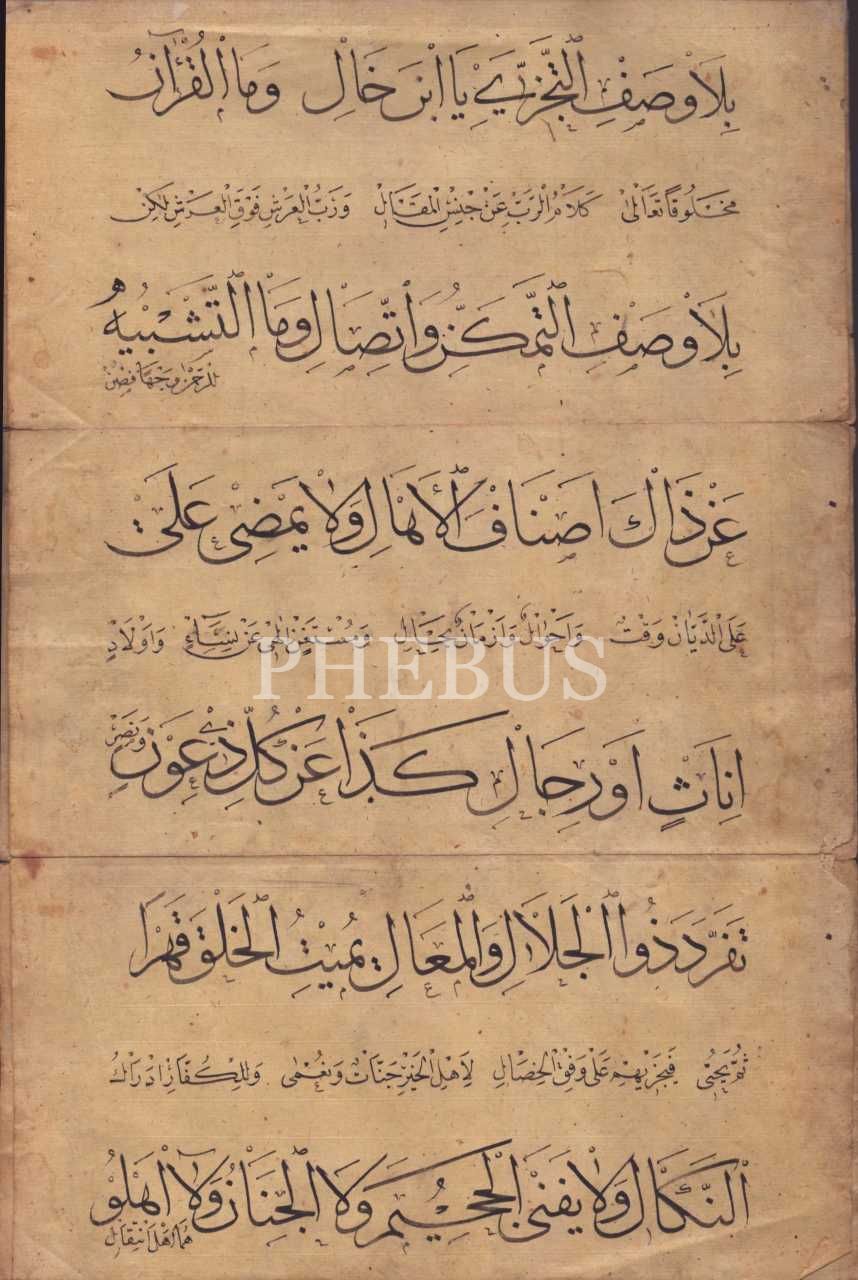 بِلَا وَصْفِ التَّجَزِّي يَا ابْنَ خَالِ وَمَا الْقُرْآنُ
مَخْلُوقًا تَعَالَىٰ كَلَامُ الرَّبِّ عَنْ جِنْسِ الْمَقَالِ وَرَبُّ الْعَرْشِ فَوْقَ الْعَرْشِ لٰكِنْ
بِلَا وَصْفِ التَّمَكُّنِ وَاتِّصَالِ وَمَا التَّشْبِيهُ
لِلرَّحْمٰنِ وَجْهًا فَصُنْ
عَنْ ذَاكَ اَصْنَافَ الْأَهَالِ وَلَا يَمْضِي عَلَى
عَلَى الدَّيَّانِ وَقْتٌ وَاَحْوَالٌ وَاَزْمَانٌ بِحَالِ وَمُسْتَغْنٍ اِلٰهِي عَنْ نِسَاءٍ وَاَوْلَادٍ
اِنَاثٍ اَوْ رِجَالِ كَذَا عَنْ كُلِّ ذِي عَوْنٍ
وَنَصْرٍ
تَفَرَّدَ ذُو الْجَلَالِ وَالْمَعَالِي يُمِيتُ الْخَلْقَ قَهْرًا
ثُمَّ يُحْيِي فَيَجْزِيهِمْ عَلَى وَفْقِ الْخِصَالِ لِأَهْلِ الْخَيْرِ جَنَّاتٌ وَنُعْمَى وَلِلْكُفَّارِ اِدْرَاكُ
النَّكَالِ وَلَا يَفْنَى الْجَحِيمُ وَلَا الْجِنَانُ وَلَا اَهْلُو
هُمَا اَهْلُ انْتِقَالِ
PHEBUS